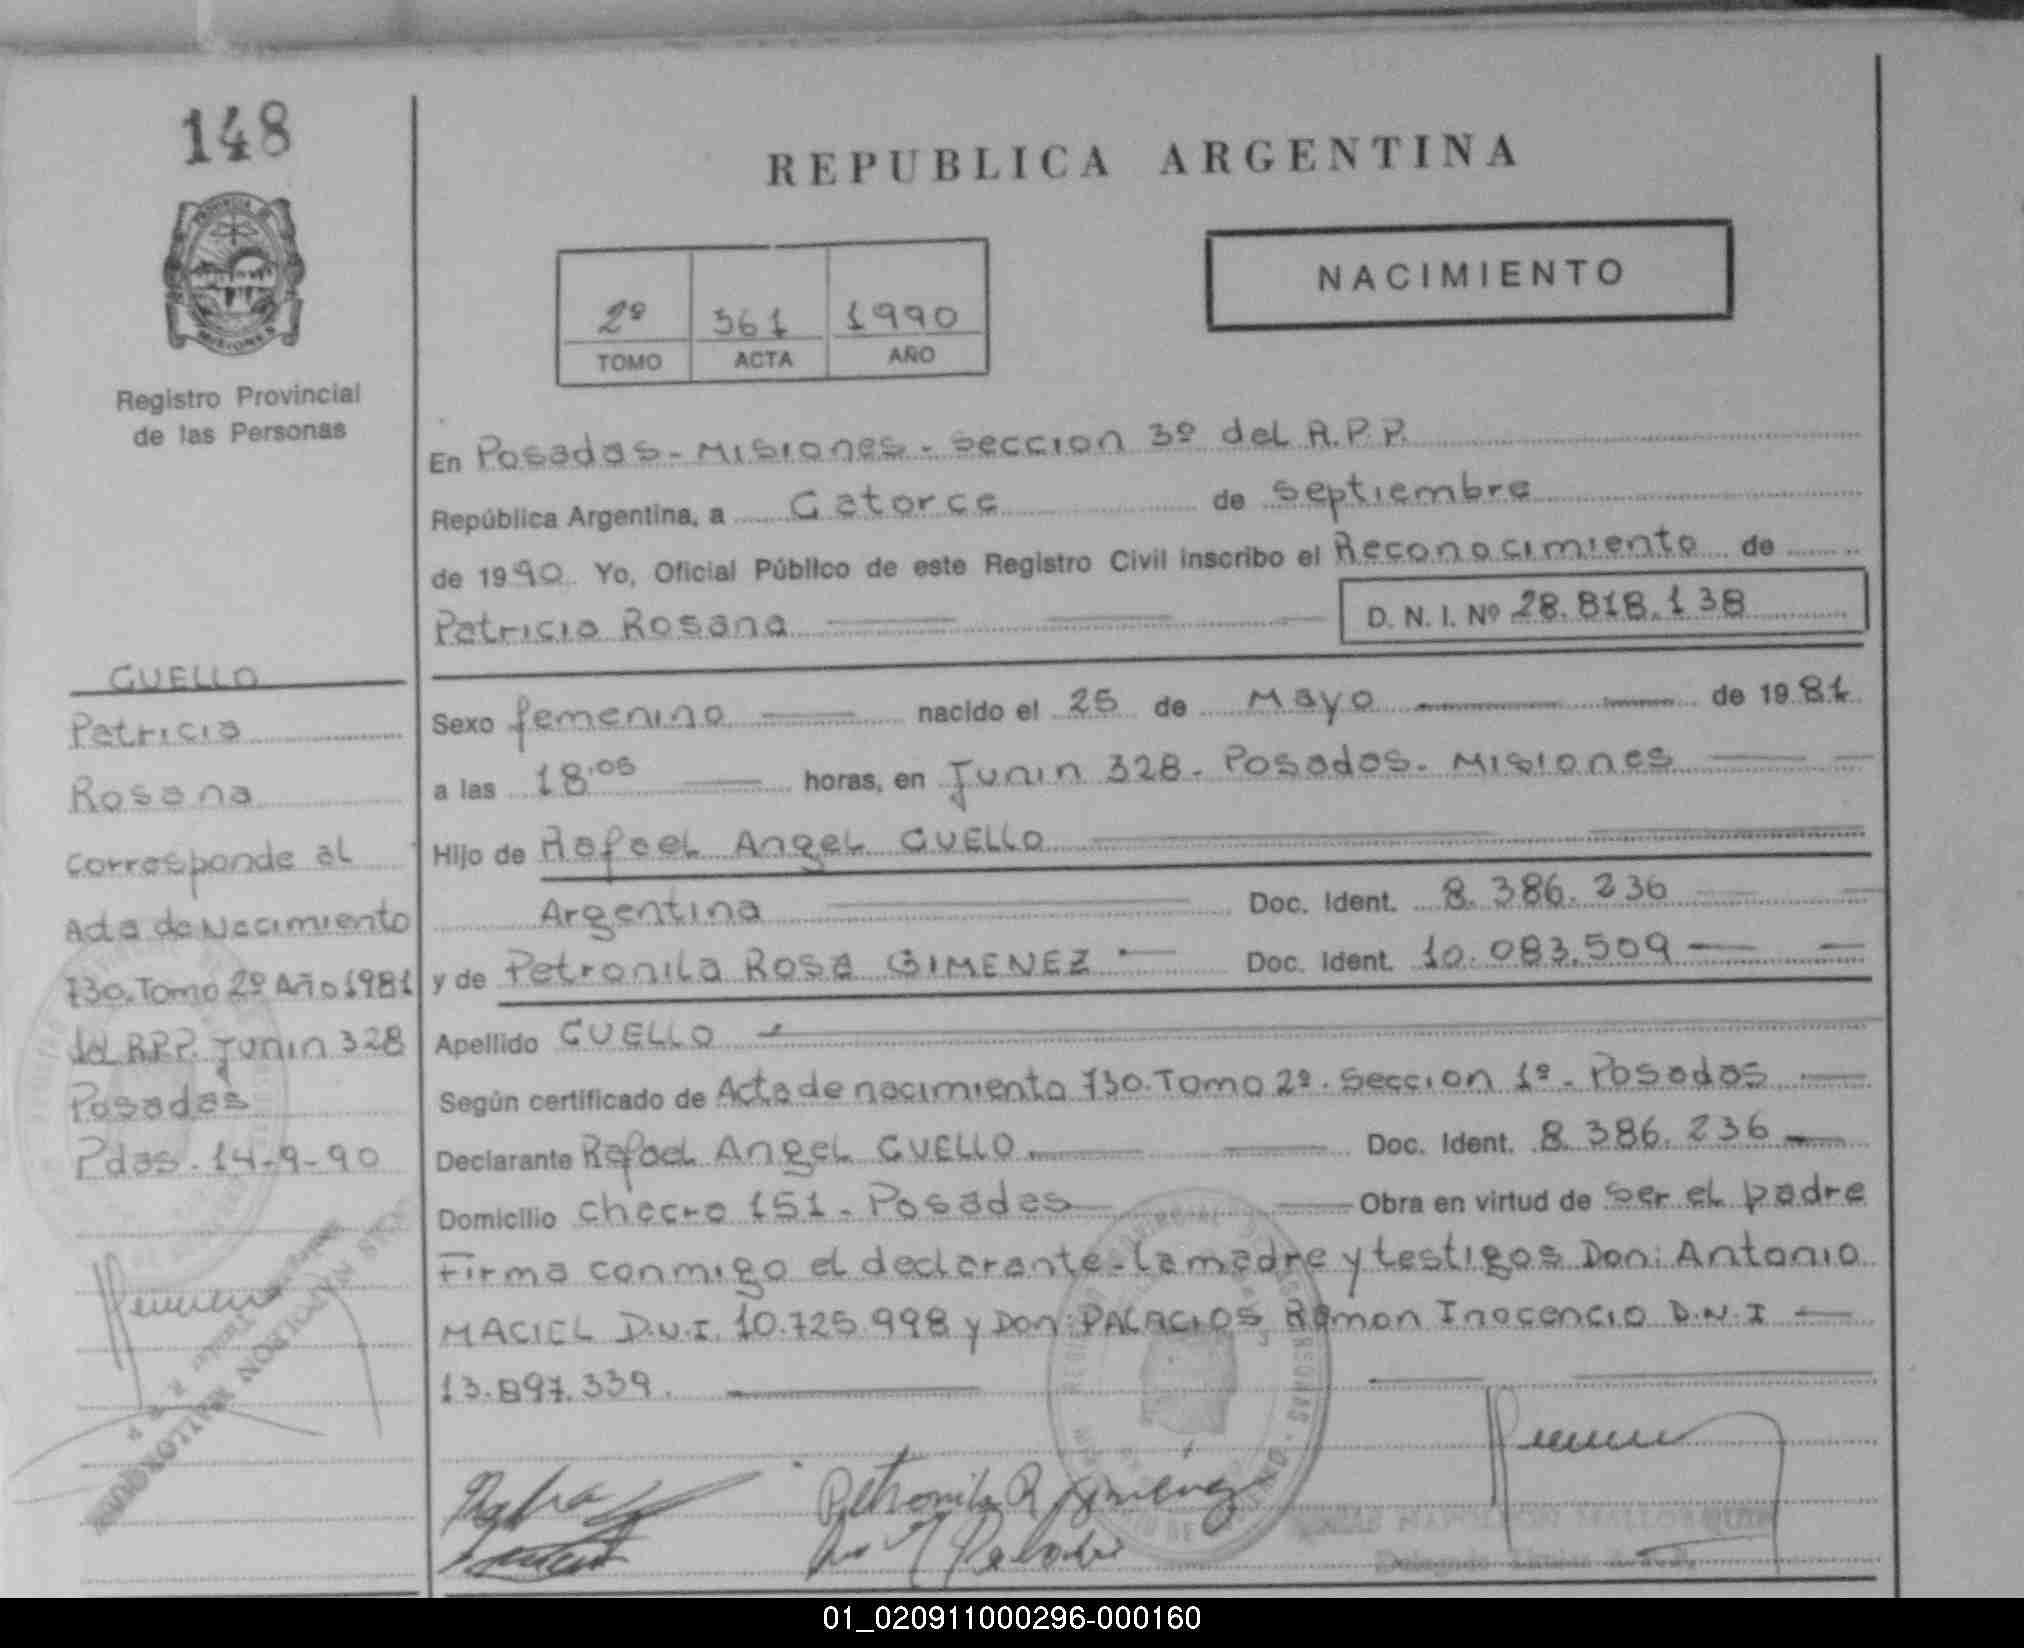 148
REPUBLICA ARGENTINA
PROVINCIA DE
MISIONES
Registro Provincial
de las Personas
2º 361 1990
TOMO ACTA AÑO
NACIMIENTO
En Posadas - Misiones - seccion 3º del R.P.P.
República Argentina, a Catorce de septiembre
de 1990. Yo, Oficial Público de este Registro Civil inscribo el Reconocimiento de
Patricia Rosana D. N. I. Nº 28.818.138
CUELLO
Patricia
Rosana
corresponde al
Acta de Nacimiento
730. Tomo 2º Año 1981
del R.P.P. Junin 328
Posadas
Pdas. 14-9-90
Sexo femenino nacido el 25 de Mayo de 1981.
a las 18.05 horas, en Junin 328 - Posadas - Misiones
Hijo de Rafael Angel CUELLO
Argentina Doc. Ident. 8.386.236
y de Petronila Rosa GIMENEZ Doc. Ident. 10.083.509
Apellido CUELLO
Según certificado de Acta de nacimiento 730. Tomo 2º. Seccion 1º - Posadas
Declarante Rafael Angel CUELLO Doc. Ident. 8.386.236
Domicilio chacra 151 - Posadas Obra en virtud de ser el padre
Firma conmigo el declarante - la madre y testigos Don: Antonio
MACIEL D.N.I. 10.725.998 y Don: PALACIOS Ramon Inocencio D.N.I
13.897.339.
Petronila R Gimenez
NAPOLEON MALLORQUIN
01_020911000296-000160